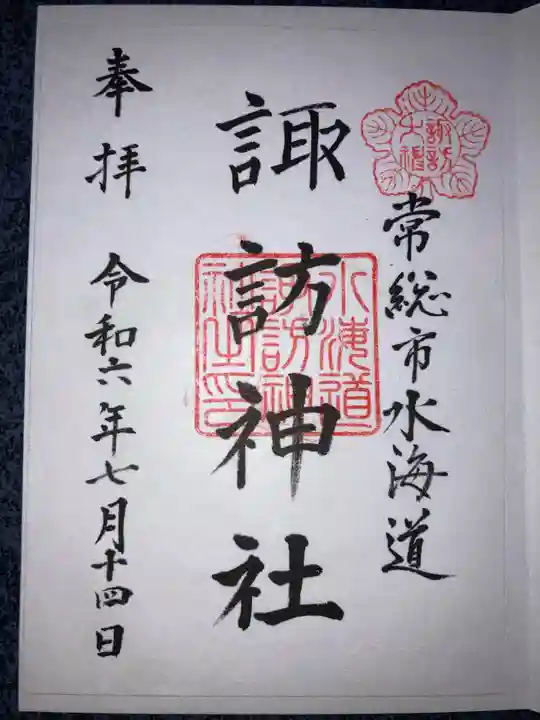 諏訪大神
常総市水海道
諏訪神社
水海道
諏訪神
社之印
奉拝 令和六年七月十四日